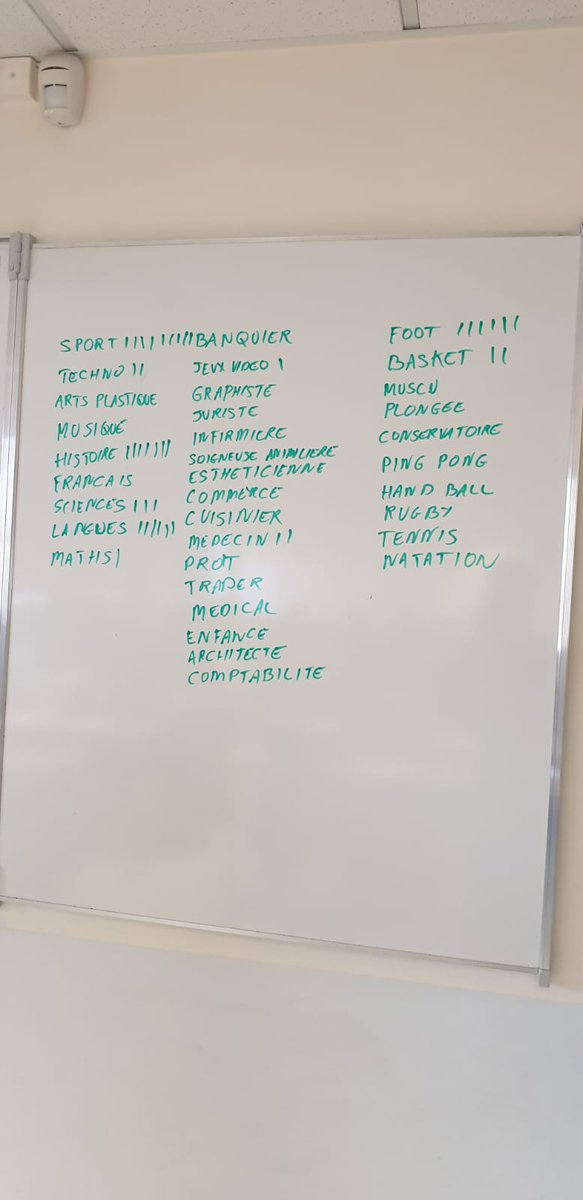 SPORT IIIIIIIIII
TECHNO II
ARTS PLASTIQUE
MUSIQUE
HISTOIRE IIIIIII
FRANCAIS
SCIENCES III
LANGUES IIIIII
MATHS I
BANQUIER
JEUX VIDEO I
GRAPHISTE
JURISTE
INFIRMIERE
SOIGNEUSE ANIMALIERE
ESTHETICIENNE
COMMERCE
CUISINIER
MEDECIN II
PROF
TRADER
MEDICAL
ENFANCE
ARCHITECTE
COMPTABILITE
FOOT IIIIIII
BASKET II
MUSCU
PLONGEE
CONSERVATOIRE
PING PONG
HAND BALL
RUGBY
TENNIS
NATATION